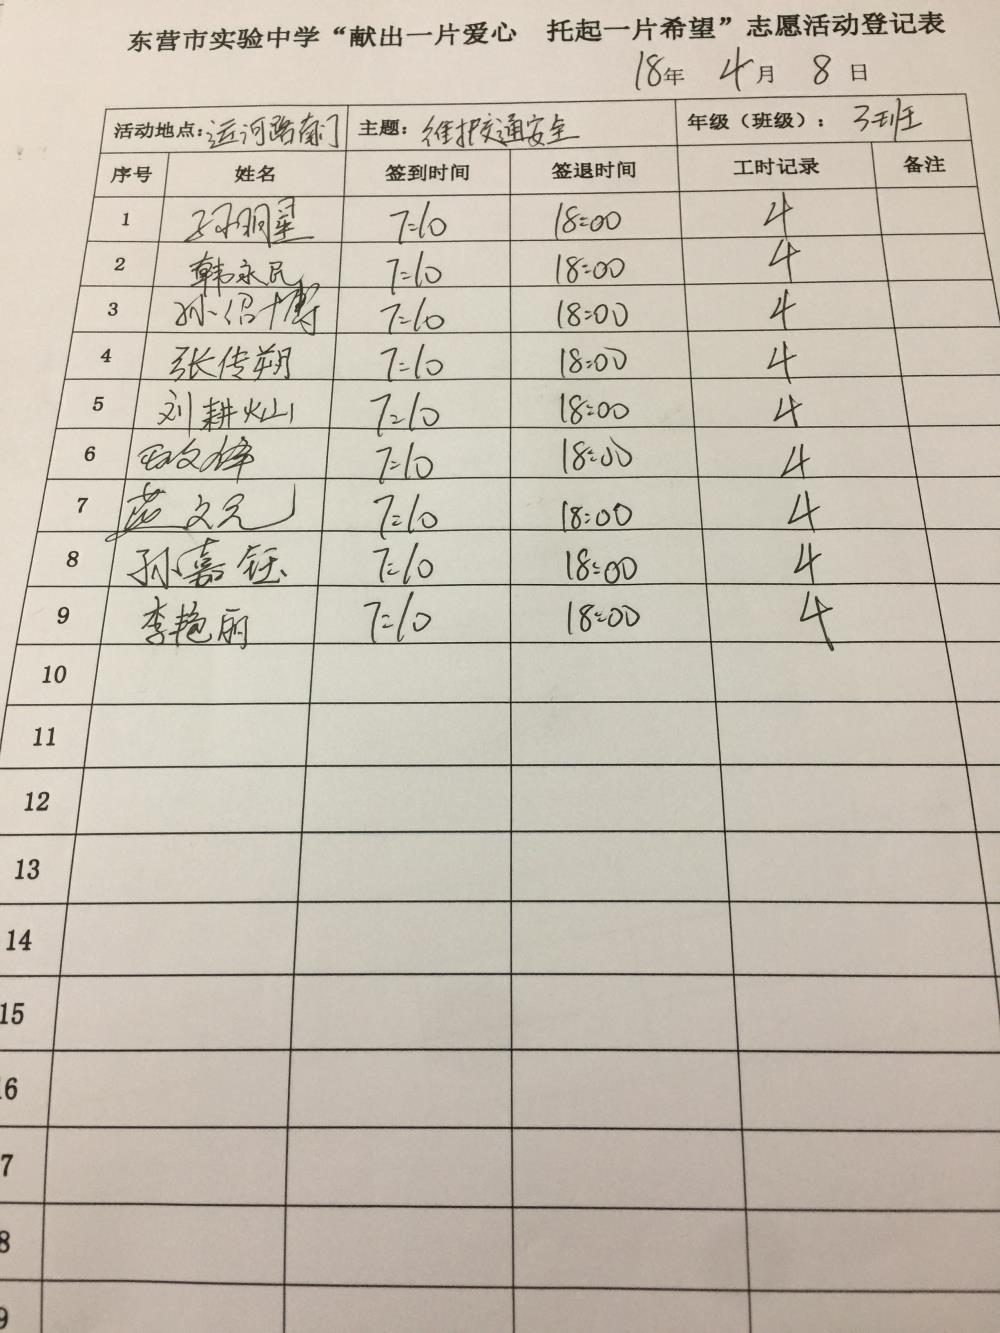 东营市实验中学“献出一片爱心 托起一片希望”志愿活动登记表
18年 4月 8日
活动地点:运河路南门 主题:维护交通安全 年级(班级):3班
序号 姓名 签到时间 签退时间 工时记录 备注
1 孙明星 7:10 18:00 4
2 韩永民 7:10 18:00 4
3 孙绍博 7:10 18:00 4
4 张传朔 7:10 18:00 4
5 刘耕灿 7:10 18:00 4
6 7:10 18:00 4
7 文元 7:10 18:00 4
8 孙嘉钰 7:10 18:00 4
9 李艳丽 7:10 18:00 4
10
11
12
13
14
15
16
7
8
9